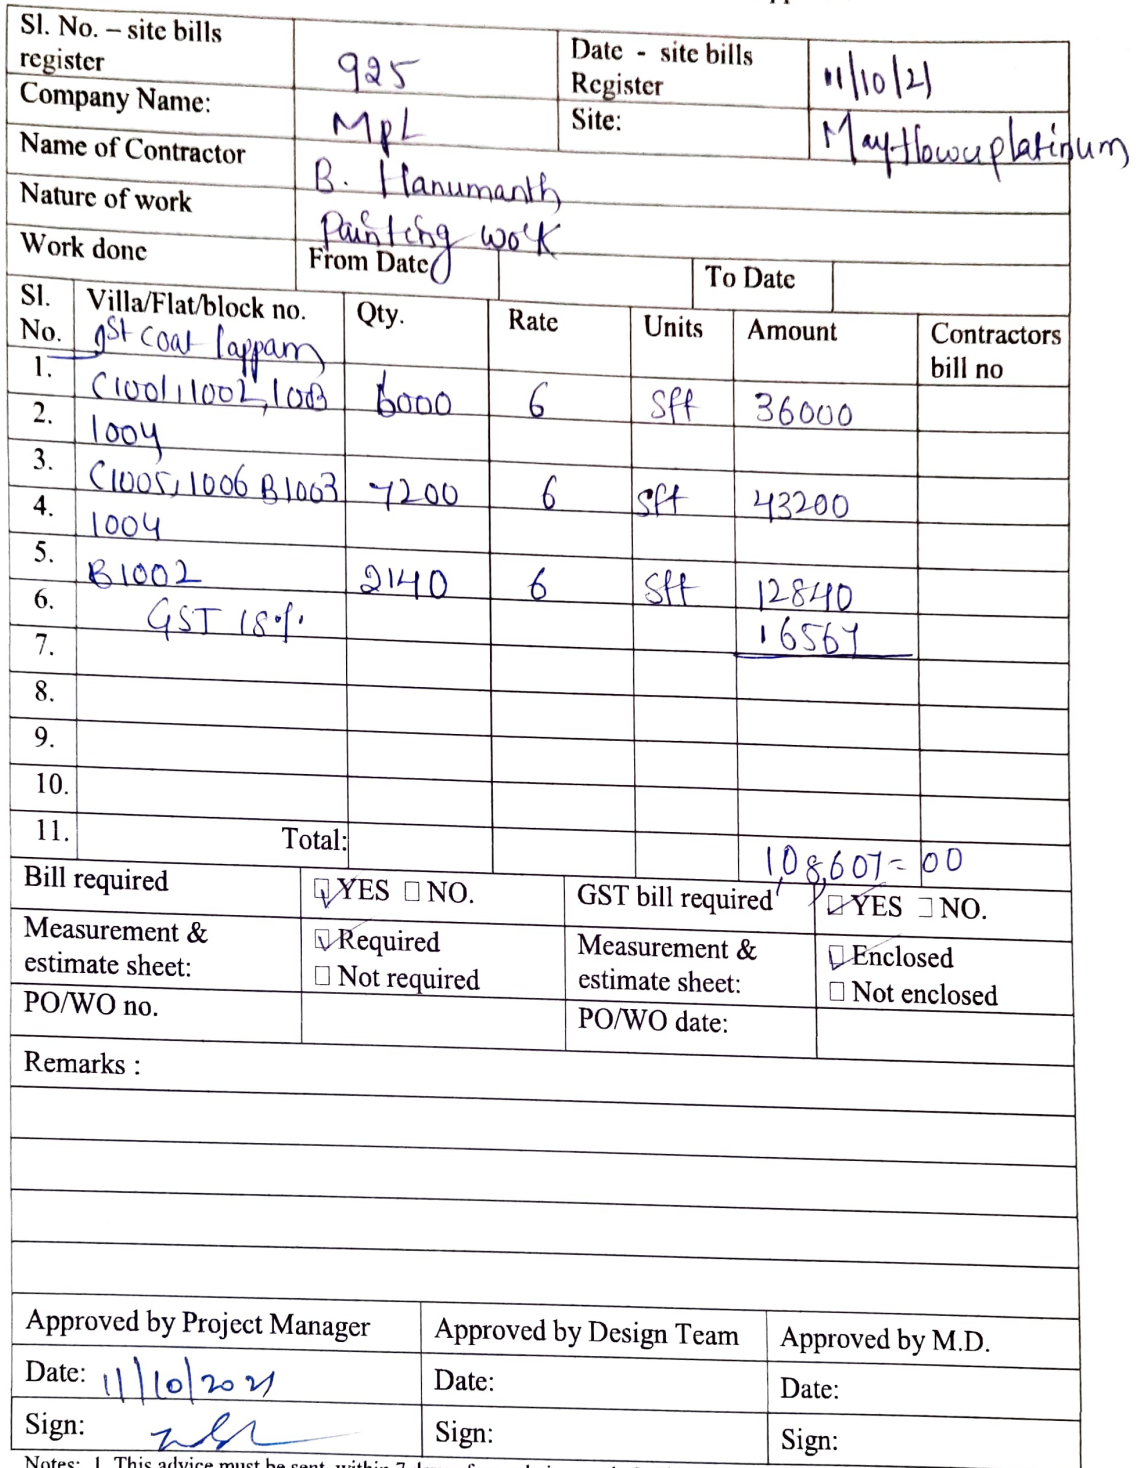 Sl. No. – site bills register 925 Date - site bills Register 11/10/21
Company Name: MPL Site: Mayflower platinum
Name of Contractor B. Hanumanth
Nature of work Painting work
Work done From Date To Date
Sl. No. Villa/Flat/block no. Qty. Rate Units Amount Contractors bill no
1st coat lappam
1. C1001,1002,1003 6000 6 Sft 36000
2. 1004
3. C1005,1006 B1003 7200 6 Sft 43200
4. 1004
5. B1002 2140 6 Sft 12840
6. GST 18% 16567
7.
8.
9.
10.
11. Total: 1,08,607=00
Bill required ☑ YES ☐ NO. GST bill required ☑ YES ☐ NO.
Measurement & estimate sheet: ☑ Required ☐ Not required Measurement & estimate sheet: ☑ Enclosed ☐ Not enclosed
PO/WO no. PO/WO date:
Remarks :
Approved by Project Manager Approved by Design Team Approved by M.D.
Date: 11/10/2021 Date: Date:
Sign: Sign: Sign:
Notes: 1. This advice must be sent within 7 days